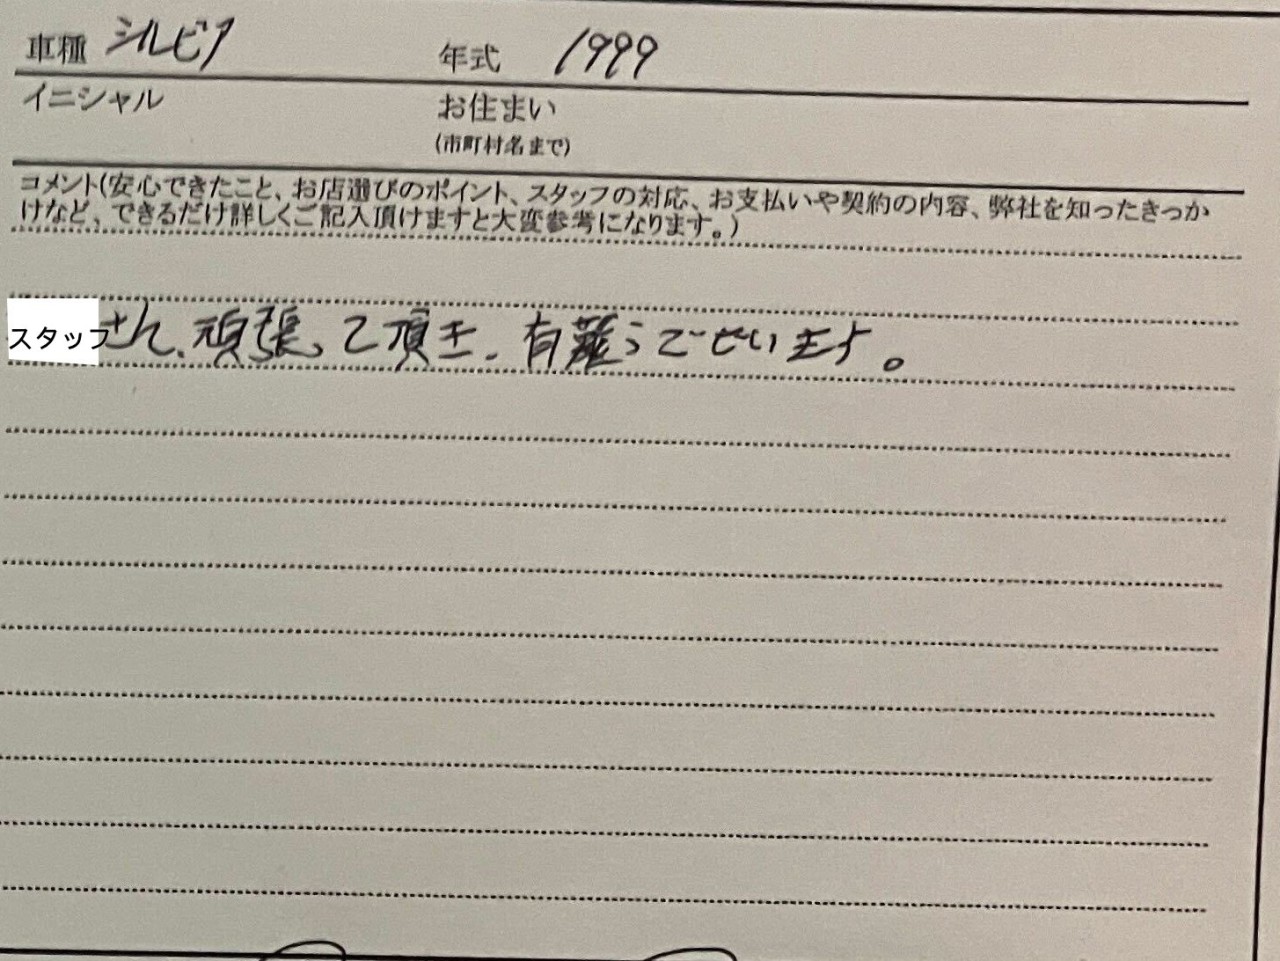 車種 シルビア 年式 1999
イニシャル お住まい
(市町村名まで)
コメント(安心できたこと、お店選びのポイント、スタッフの対応、お支払いや契約の内容、弊社を知ったきっか
けなど、できるだけ詳しくご記入頂けますと大変参考になります。)
スタッフさん、頑張って頂き、有難うございます。